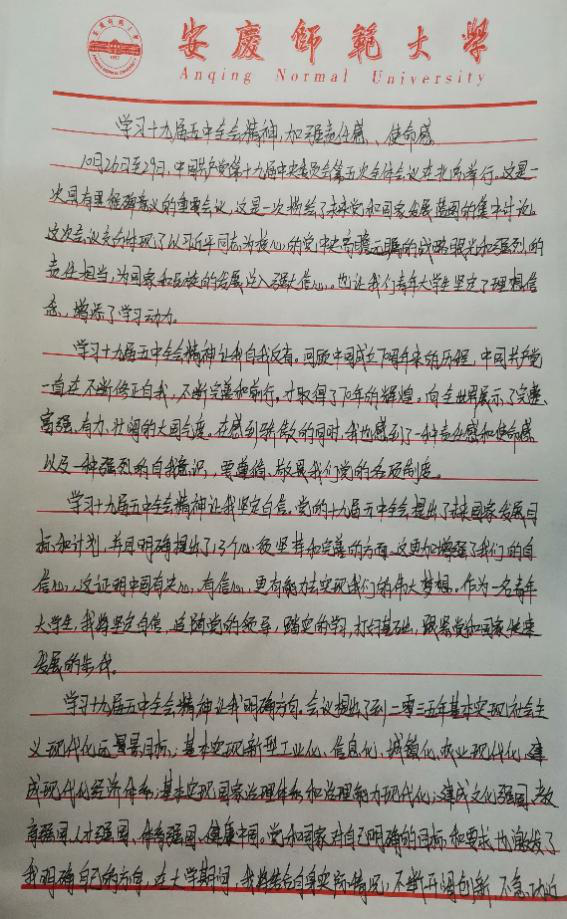 安慶師範大學
Anqing Normal University
学习十九届五中全会精神,加强责任感、使命感
10月26日至29日,中国共产党第十九届中央委员会第五次全体会议在北京举行。这是一
次具有里程碑意义的重要会议,这是一次描绘了未来党和国家发展蓝图的集中讨论。
这次会议充分体现了以习近平同志为核心的党中央高瞻远瞩的战略眼光和强烈的
责任担当,为国家和民族的发展注入强大信心。也让我们青年大学生坚定了理想信
念、增添了学习动力。
学习十九届五中全会精神让我自我反省。回顾中国成立70周年来的历程,中国共产党
一直在不断修正自我,不断完善和前行。才取得了70年的辉煌。向全世界展示了完整、
富强、有力、壮阔的大国气度。在感到骄傲的同时,我也感到了一种责任感和使命感
以及一种强烈的自我意识,要遵循、敬畏我们党的各项制度。
学习十九届五中全会精神让我坚定自信。党的十九届五中全会提出了未来国家发展目
标和计划,并且明确提出了13个必须坚持和完善的方面。这更加增强了我们的自
信心,这证明中国有决心,有信心,更有能力去实现我们的伟大梦想。作为一名青年
大学生,我将坚定自信,追随党的领导,踏实的学习,打好基础,跟紧党和国家健康
发展的步伐。
学习十九届五中全会精神让我明确方向。会议提出了到二零三五年基本实现社会主
义现代化远景目标,:基本实现新型工业化、信息化、城镇化、农业现代化,建
成现代化经济体系;基本实现国家治理体系和治理能力现代化;建成文化强国、教
育强国、人才强国、体育强国、健康中国。党和国家对自己明确的目标和要求,也激发了
我明确自己的方向。在大学期间,我将结合自身实际情况,不断开阔创新,不急功近